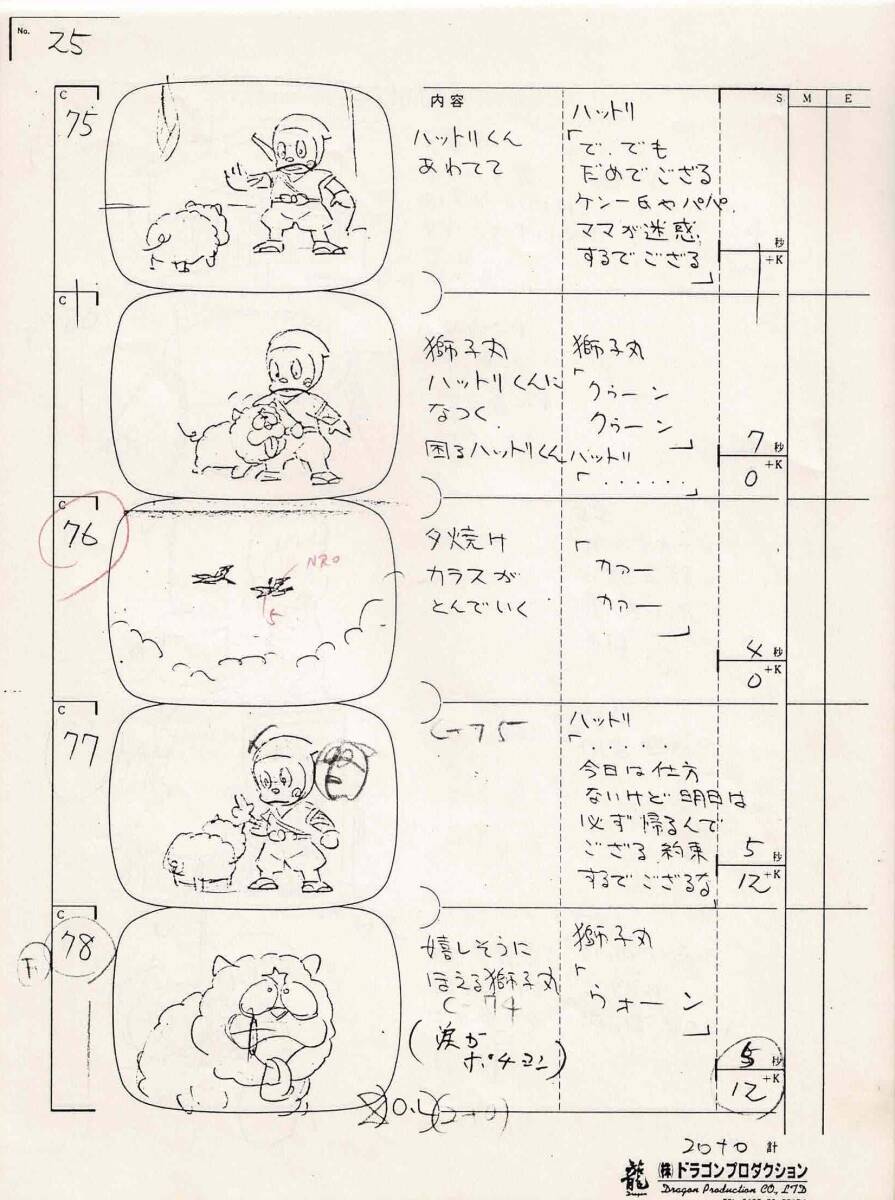 No.
25
C
75
内容
S
M
E
ハットリくん
あわてて
ハットリ
「で、でも
だめでござる
ケン一氏やパパ、
ママが迷惑
するでござる」
秒
+K
C
獅子丸
ハットリくんに
なつく
困るハットリくん
獅子丸
「クゥーン
クゥーン」
ハットリ
「......」
7秒
0+K
C
76
NRO
5
夕焼け
カラスが
とんでいく
「カァー
カァー」
4秒
0+K
C
77
C-75
ハットリ
「.....
今日は仕方
ないけど明日は
必ず帰るんで
ござる約束
するでござるな
5秒
12+K
C
78
下
嬉しそうに
ほえる獅子丸
C-74
(涙が
ポチョン)
獅子丸
「ウォーン」
5秒
12+K
O.L(2+0)
20+0計
龍
Dragon
(株)ドラゴンプロダクション
Dragon Production CO., LTD